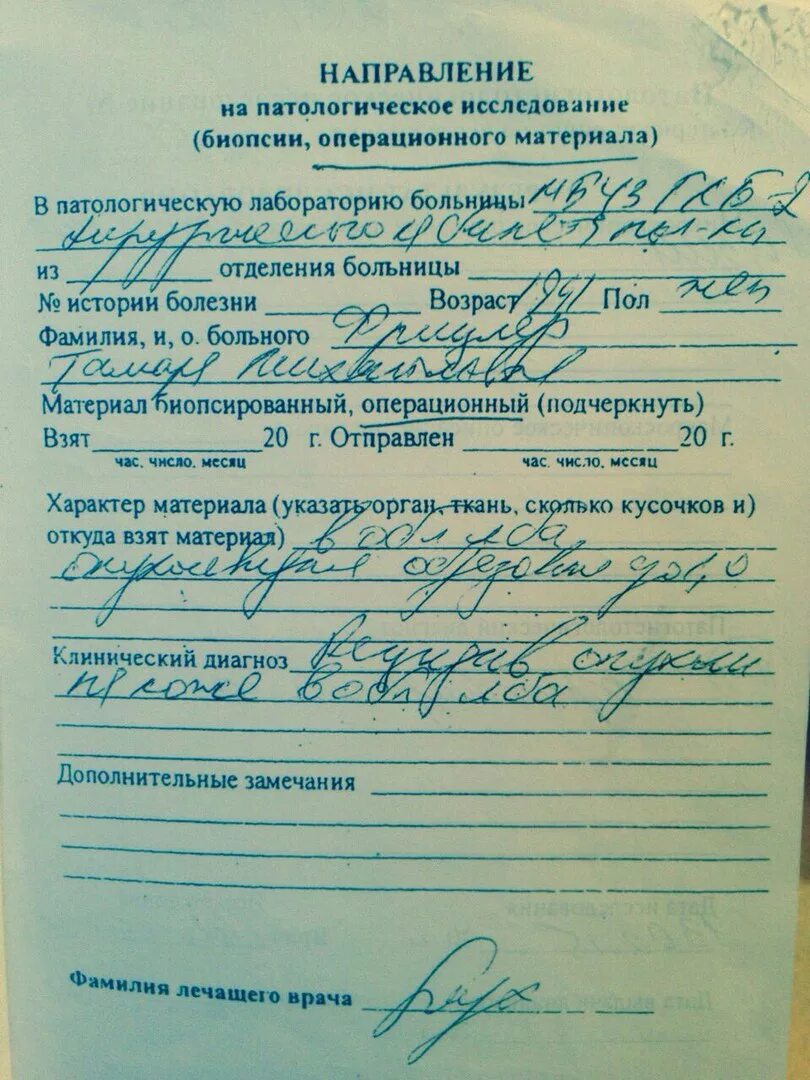 НАПРАВЛЕНИЕ
на патологическое исследование
(биопсии, операционного материала)
В патологическую лабораторию больницы МБУЗ ГКБ-2
Хирургического кабинета пол-ки
из отделения больницы
№ истории болезни Возраст 1941 Пол жен
Фамилия, и, о. больного
Тамара Михайловна
Материал биопсированный, операционный (подчеркнуть)
Взят 20 г. Отправлен 20 г.
час. число. месяц час. число. месяц
Характер материала (указать орган, ткань, сколько кусочков и)
откуда взят материал) в обл лба
опухолевидное д о 1,0
Клинический диагноз Рецидив опухоли
на коже в обл лба
Дополнительные замечания
Фамилия лечащего врача